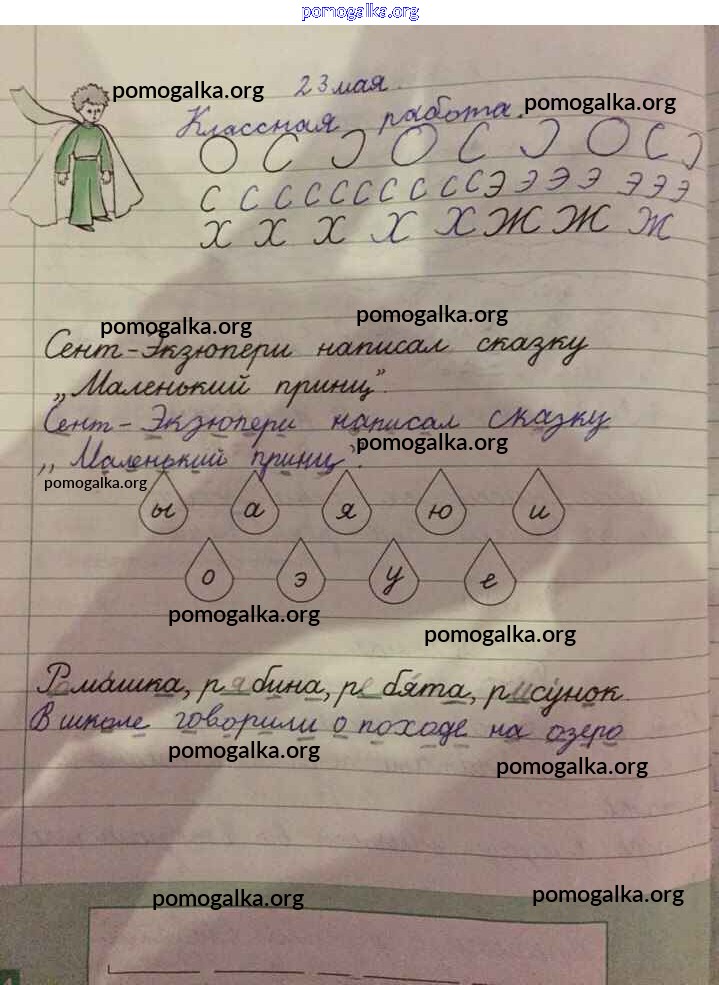 pomogalka.org
pomogalka.org 23 мая.
Классная работа. pomogalka.org
О С Э О С Э О С Э
С С С С С С С С С Э Э Э Э Э Э Э
Х Х Х Х Х Ж Ж Ж
pomogalka.org pomogalka.org
Сент-Экзюпери написал сказку
„Маленький принц".
Сент-Экзюпери написал сказку
pomogalka.org
„Маленький принц".
pomogalka.org
ы а я ю и
о э у е
pomogalka.org pomogalka.org
Рома́шка, рябина, ребя́та, рису́нок.
В школе говорили о походе на озеро
pomogalka.org pomogalka.org
pomogalka.org pomogalka.org